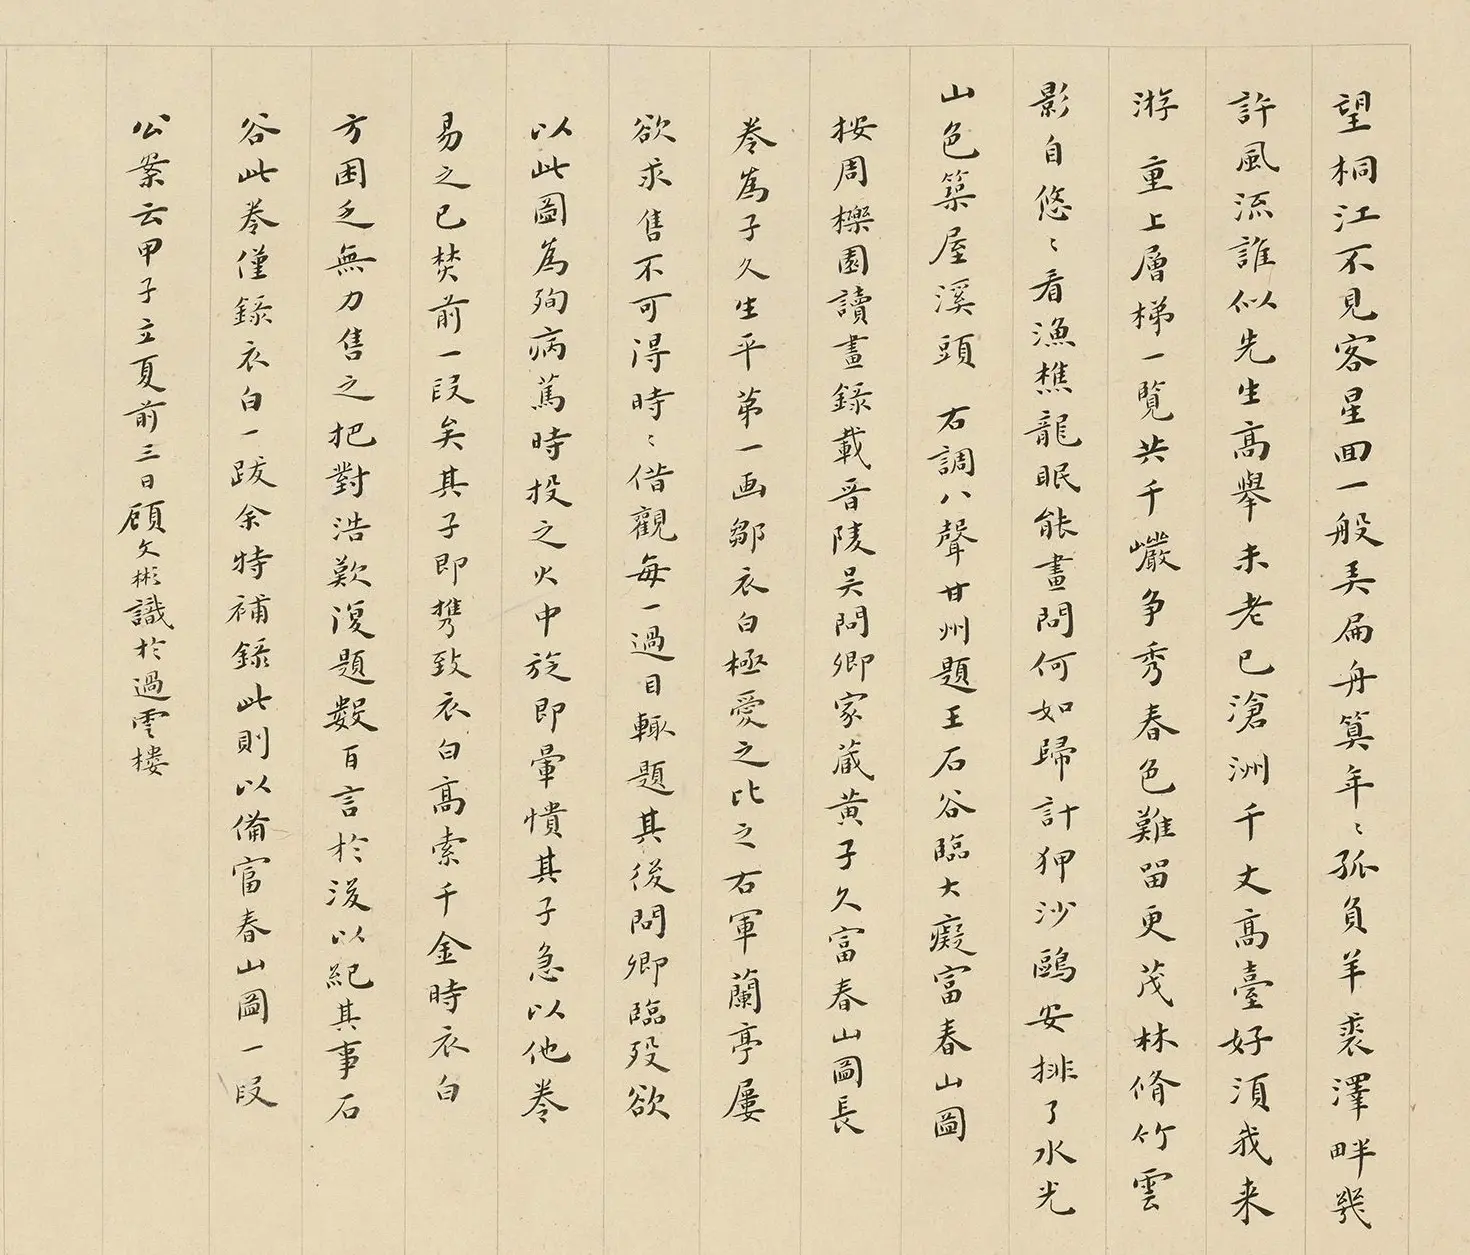 望桐江不見客星回一般美扁舟算年〻孤負羊裘澤畔幾
許風流誰似先生高舉未老已滄洲千丈高臺好須我来
游 重上層梯一覽共千巖争秀春色難留更茂林脩竹雲
影自悠〻看漁樵龍眠能畫問何如歸計狎沙鷗安排了水光
山色築屋溪頭 右調八聲甘州題王石谷臨大癡富春山圖
按周櫟園讀畫錄載晉陵吳問卿家藏黄子久富春山圖長
卷為子久生平第一画鄒衣白極愛之比之右軍蘭亭屢
欲求售不可得時〻借觀每一過目輒題其後問卿臨歿欲
以此圖為殉病篤時投之火中旋即暈憒其子急以他卷
易之已焚前一段矣其子即攜致衣白高索千金時衣白
方困乏無力售之把對浩歎復題數百言於後以紀其事石
谷此卷僅錄衣白一跋余特補錄此則以備富春山圖一段
公案云甲子立夏前三日顧文彬識於過雲樓